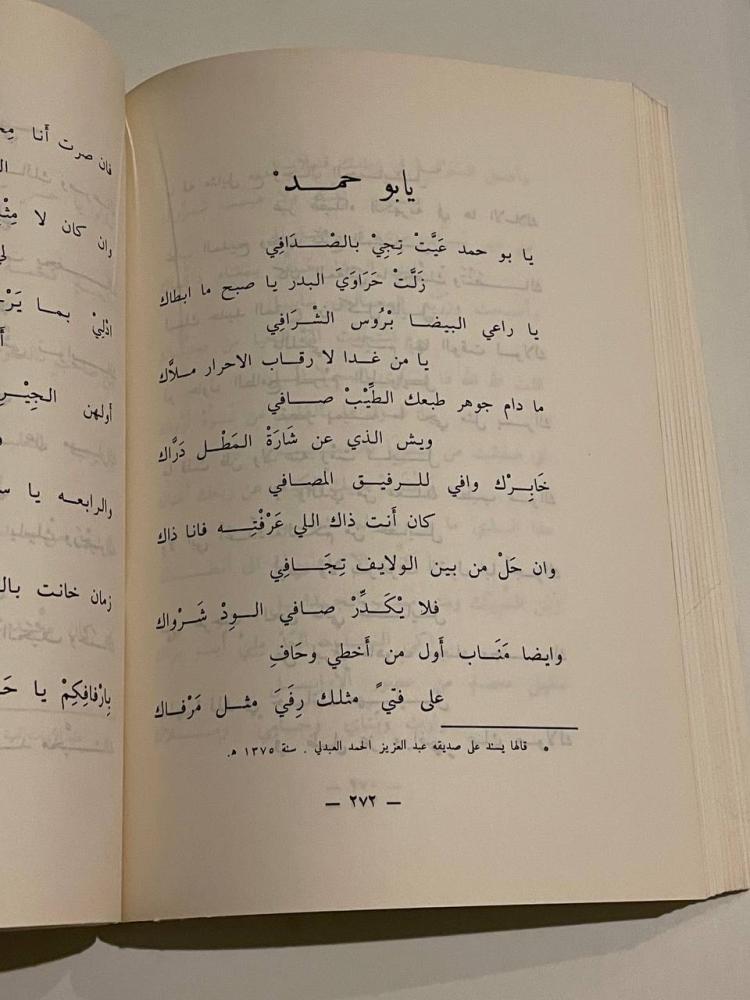 يابو حمد*
يا بو حمد عَيَّتْ تِجِيْ بالصْدَافِي
زَلَّتْ حَرَاوَيَ البدر يا صبح ما ابطاك
يا راعي البيضا بْرُوس الشْرَافِي
يا من غدا لا رقاب الاحرار ملاَّك
ما دام جوهر طبعك الطِّيْبْ صافي
ويش الذي عن شَارَةْ المَطْل دَرَّاك
خَابِرْك وافي للرفيق المصافي
كان أنت ذاك اللي عَرَفْتِه فانا ذاك
وان حَلْ من بين الولايف تِجَافِي
فلا يْكَدِّرْ صافي الودْ شَرْواك
وايضا مَنَاب أول من أخطي وحَافِ
على فتيً مثلك رِفَيَ مثل مَرْفاك
* قالها يسند على صديقه عبد العزيز الحمد العبدلي . سنة ١٣٧٥ هـ.
— ٢٧٢ —
فان صرت أنا
وان كان لا
بما
أولهن
والرابعه يا
زمان خانت
بِارْفافِكِمْ يا